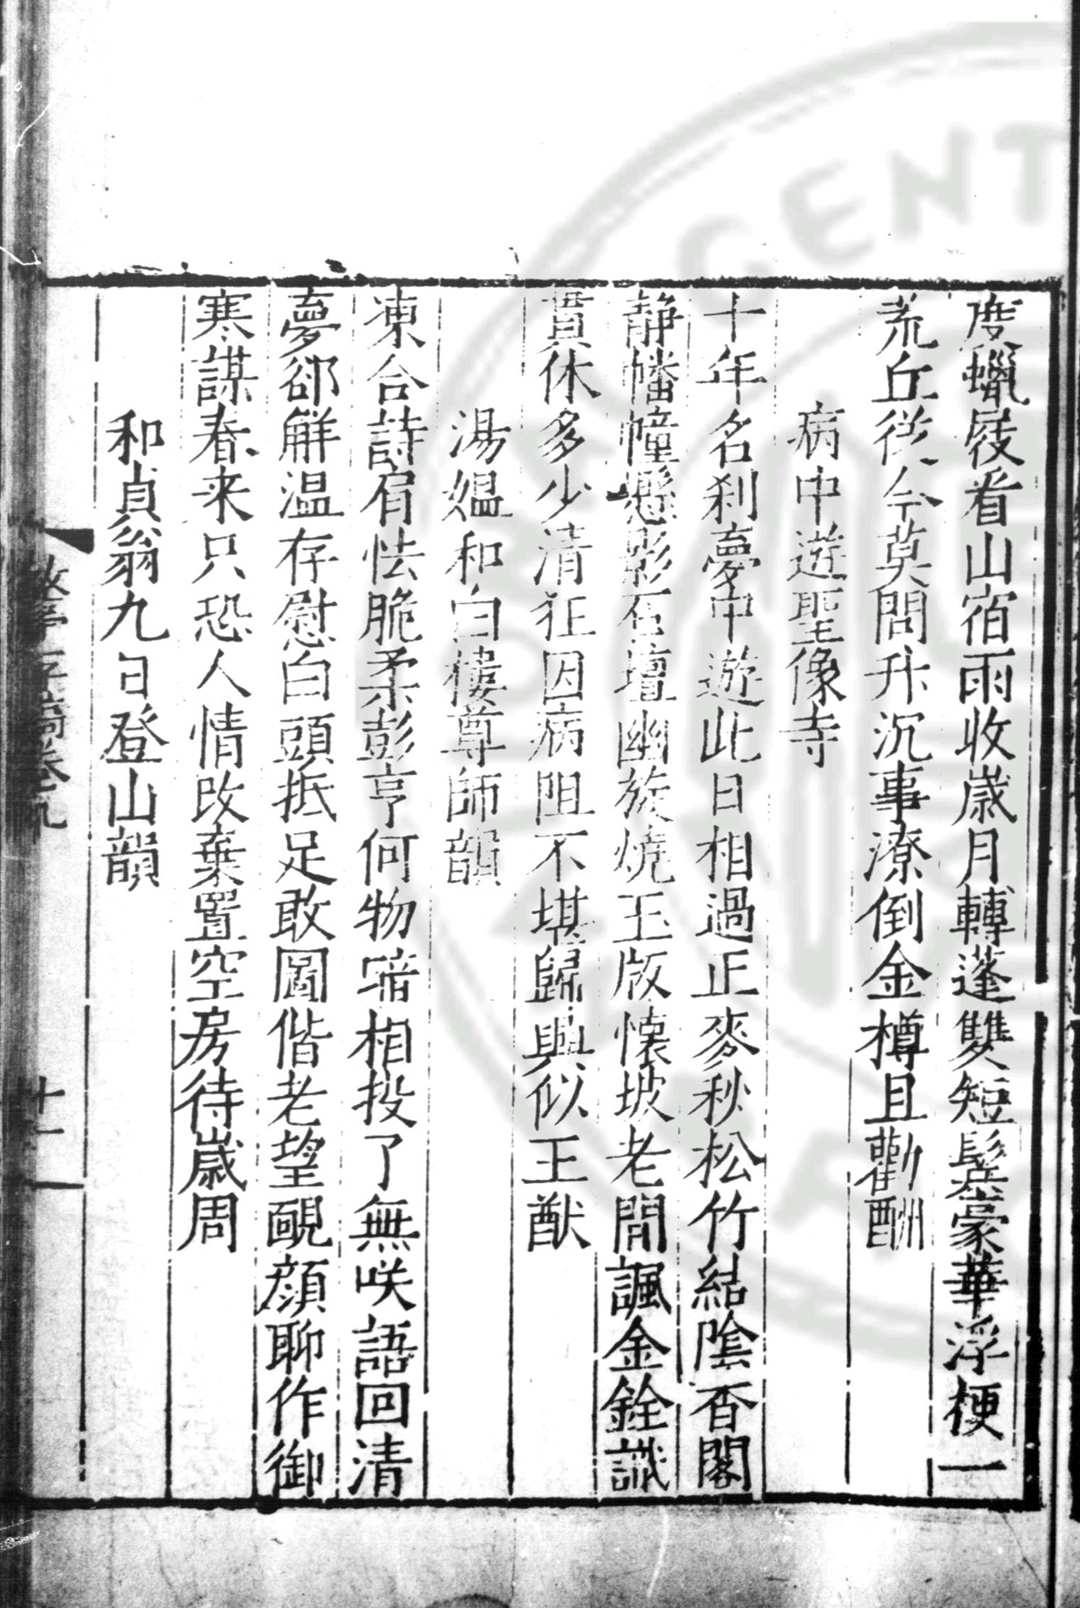 度蠟屐看山宿雨收歲月轉蓬雙短髮豪華浮梗一
荒丘從今莫問升沉事潦倒金樽且勸酬
病中遊聖像寺
十年名刹夢中遊此日相過正麥秋松竹結陰香閣
静幡幢懸影石壇幽旋燒玉版懷坡老閒諷金銓識
貫休多少清狂因病阻不堪歸興似王猷
湯媼和白樓尊師韻
凍合詩肩怯脆柔彭亨何物喑相投了無咲語回清
夢郤解温存慰白頭抵足敢圖偕老望靦顔聊作御
寒謀春来只恐人情改棄置空房待歲周
和貞翁九日登山韻
存稿卷九
十一